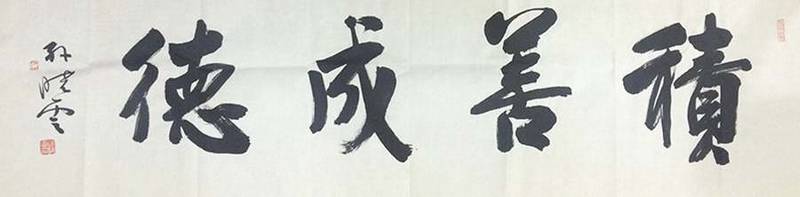 積善成德
孙晓云